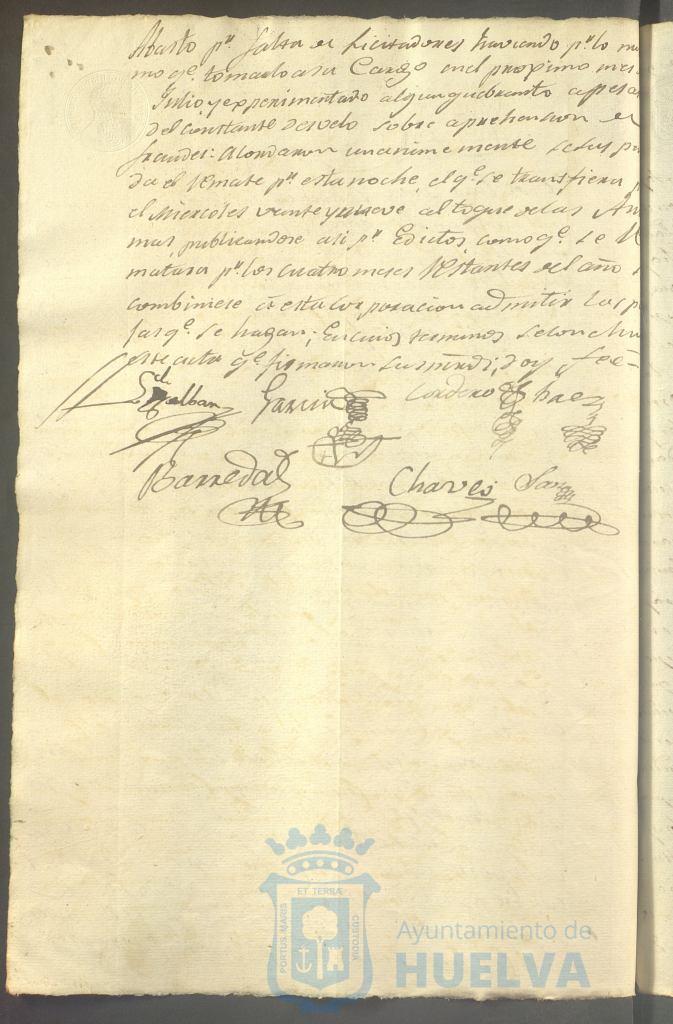 Abasto pr. falta de Licitadores haviendo pr. lo
mo qe. tomarlo a su Cargo en el proximo mes
Julio y experimentado algun quebranto a pesar
del constante desvelo sobre aprehension de
fraudes: Acordaron unanimemente se sus
da el Remate pr. esta noche, el qe. se transfiera
el Miercoles veinte y nueve al toque de las Ani
mas, publicandose asi pr. Edictos como qe. se Re
matara pr. los cuatro meses Restantes del año
combiniese á esta Corporacion admitir las
las qe. se hagan; En cuios terminos
este acta qe. firmaron sus mrds; doy fee=
García Cordero
Barreda
Chaves
PORTUS MARIS ET TERRÆ CUSTODIA
Ayuntamiento de
HUELVA